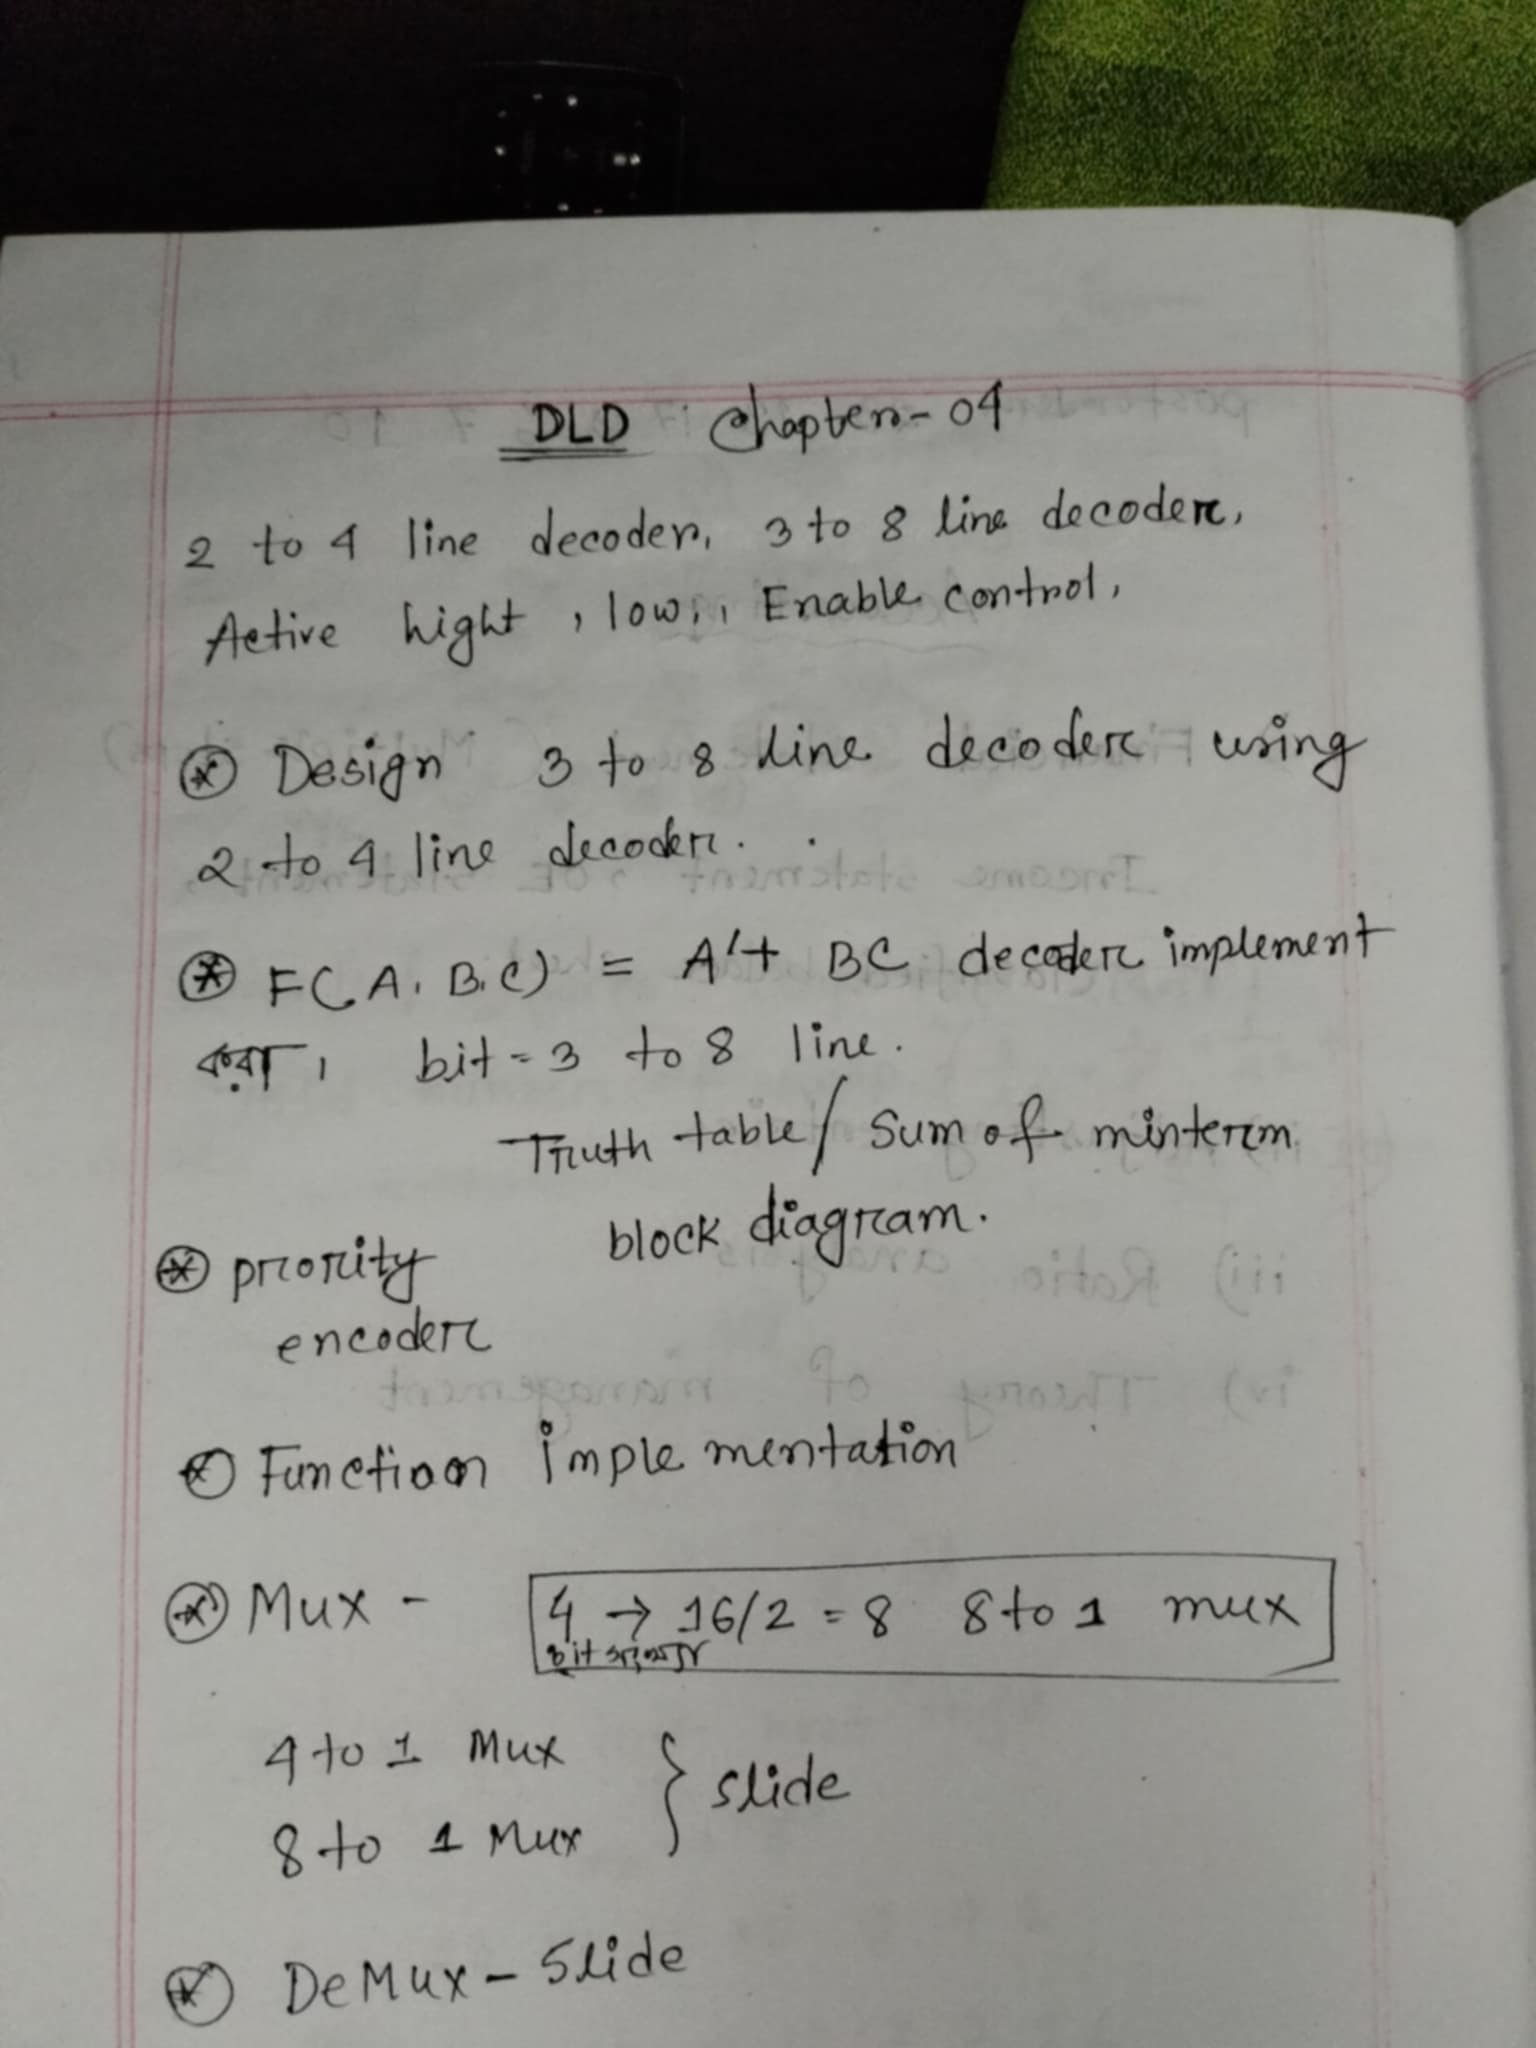 DLD Chapter-04
2 to 4 line decoder, 3 to 8 line decoder,
Active hight, low, Enable control,
Design 3 to 8 line decoder using
2 to 4 line decoder.
F(A, B, C) = A' + BC decoder implement
করা, bit = 3 to 8 line.
Truth table / Sum of minterm
block diagram.
priority
encoder
Function implementation
Mux - 4 → 16/2 = 8 8 to 1 mux
bit
4 to 1 Mux
8 to 1 Mux } slide
DeMux - Slide